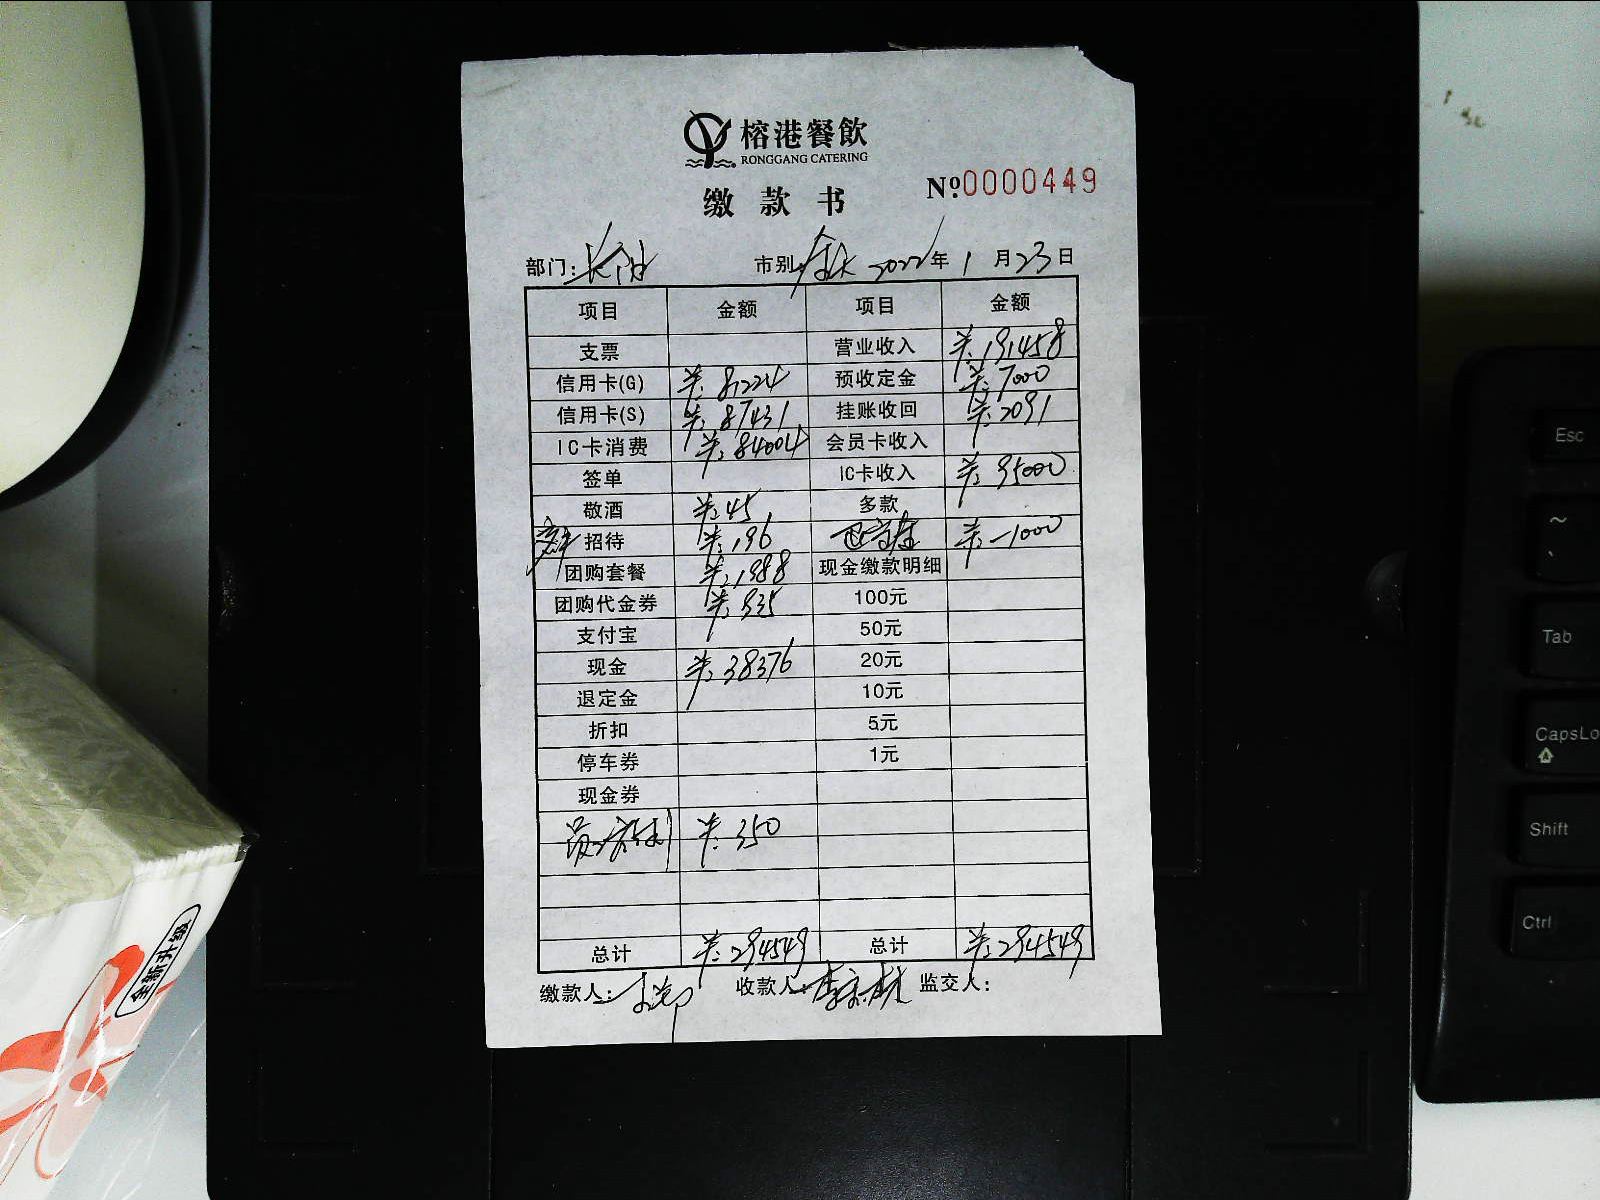 榕港餐飲
RONGGANG CATERING
缴款书 №0000449
部门：长阳 市别：全天 2022年1月23日
项目 金额 项目 金额
支票 营业收入 ¥:191458
信用卡(G) ¥:81224 预收定金 ¥:7000
信用卡(S) ¥:87431 挂账收回 ¥:2091
IC卡消费 ¥:84004 会员卡收入
签单 IC卡收入 ¥:95000
敬酒 ¥:45 多款
招待 ¥:196 退定金 ¥:-1000
团购套餐 ¥:1988 现金缴款明细
团购代金券 ¥:935 100元
支付宝 50元
现金 ¥:38376 20元
退定金 10元
折扣 5元
停车券 1元
现金券
¥:350
总计 ¥:294549 总计 ¥:294549
缴款人： 收款人： 监交人：
全新升级
Esc
~
`
Tab
CapsLo
Shift
Ctrl